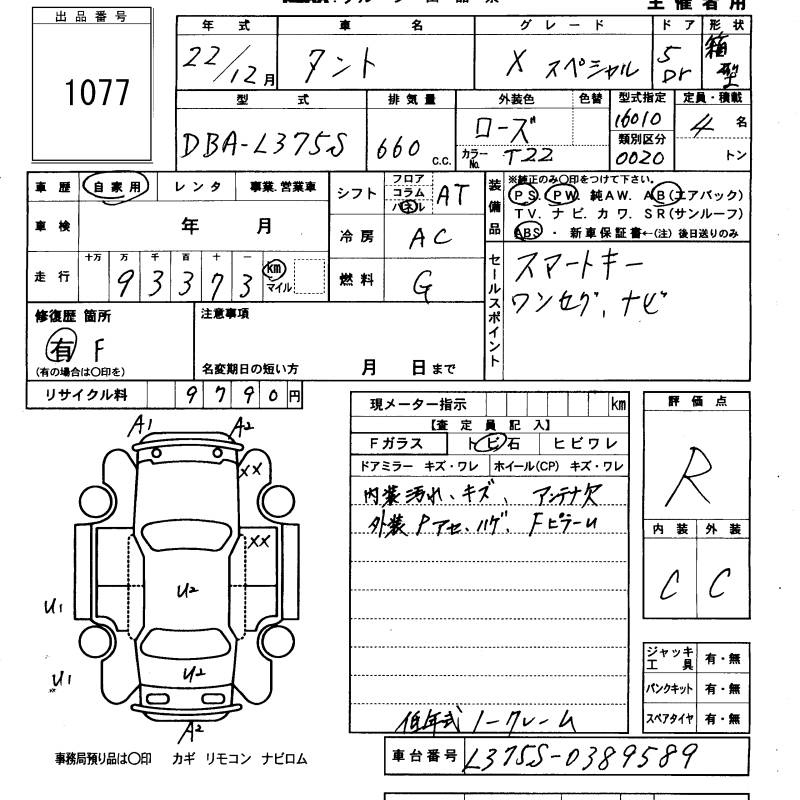 主催者用
出品番号
1077
年式 車名 グレード ドア 形状
22/12月 タント X スペシャル 5Dr 箱型
型式 排気量 外装色 色替 型式指定 定員・積載
DBA-L375S 660 c.c. ローズ 16010 4 名
カラーNo. T22 類別区分 0020 トン
車歴 自家用 レンタ 事業.営業車
シフト フロア コラム パネル AT
装備品
※純正のみ○印をつけて下さい。
PS. PW. 純AW. AB(エアバック)
TV. ナビ. カワ. SR(サンルーフ)
ABS ・ 新車保証書←(注)後日送りのみ
車検 年 月
冷房 AC
走行 十万 万 千 百 十 一
93373 km マイル
燃料 G
セールスポイント
スマートキー
ワンセグ、ナビ
修復歴 箇所
有 F
(有の場合は○印を)
注意事項
名変期日の短い方 月 日まで
リサイクル料 9790円
現メーター指示 km
【査定員記入】
Fガラス トビ石 ヒビワレ
ドアミラー キズ・ワレ ホイール(CP) キズ・ワレ
内装汚れ、キズ、アンテナ欠
外装Pアセ、ハゲ、Fピラーu
低年式ノークレーム
評価点
R
内装 外装
C C
ジャッキ工具 有・無
パンクキット 有・無
スペアタイヤ 有・無
A1 A2
XX
XX
U2
U1
U1
U2
A2
事務局預り品は○印 カギ リモコン ナビロム
車台番号 L375S-0389589